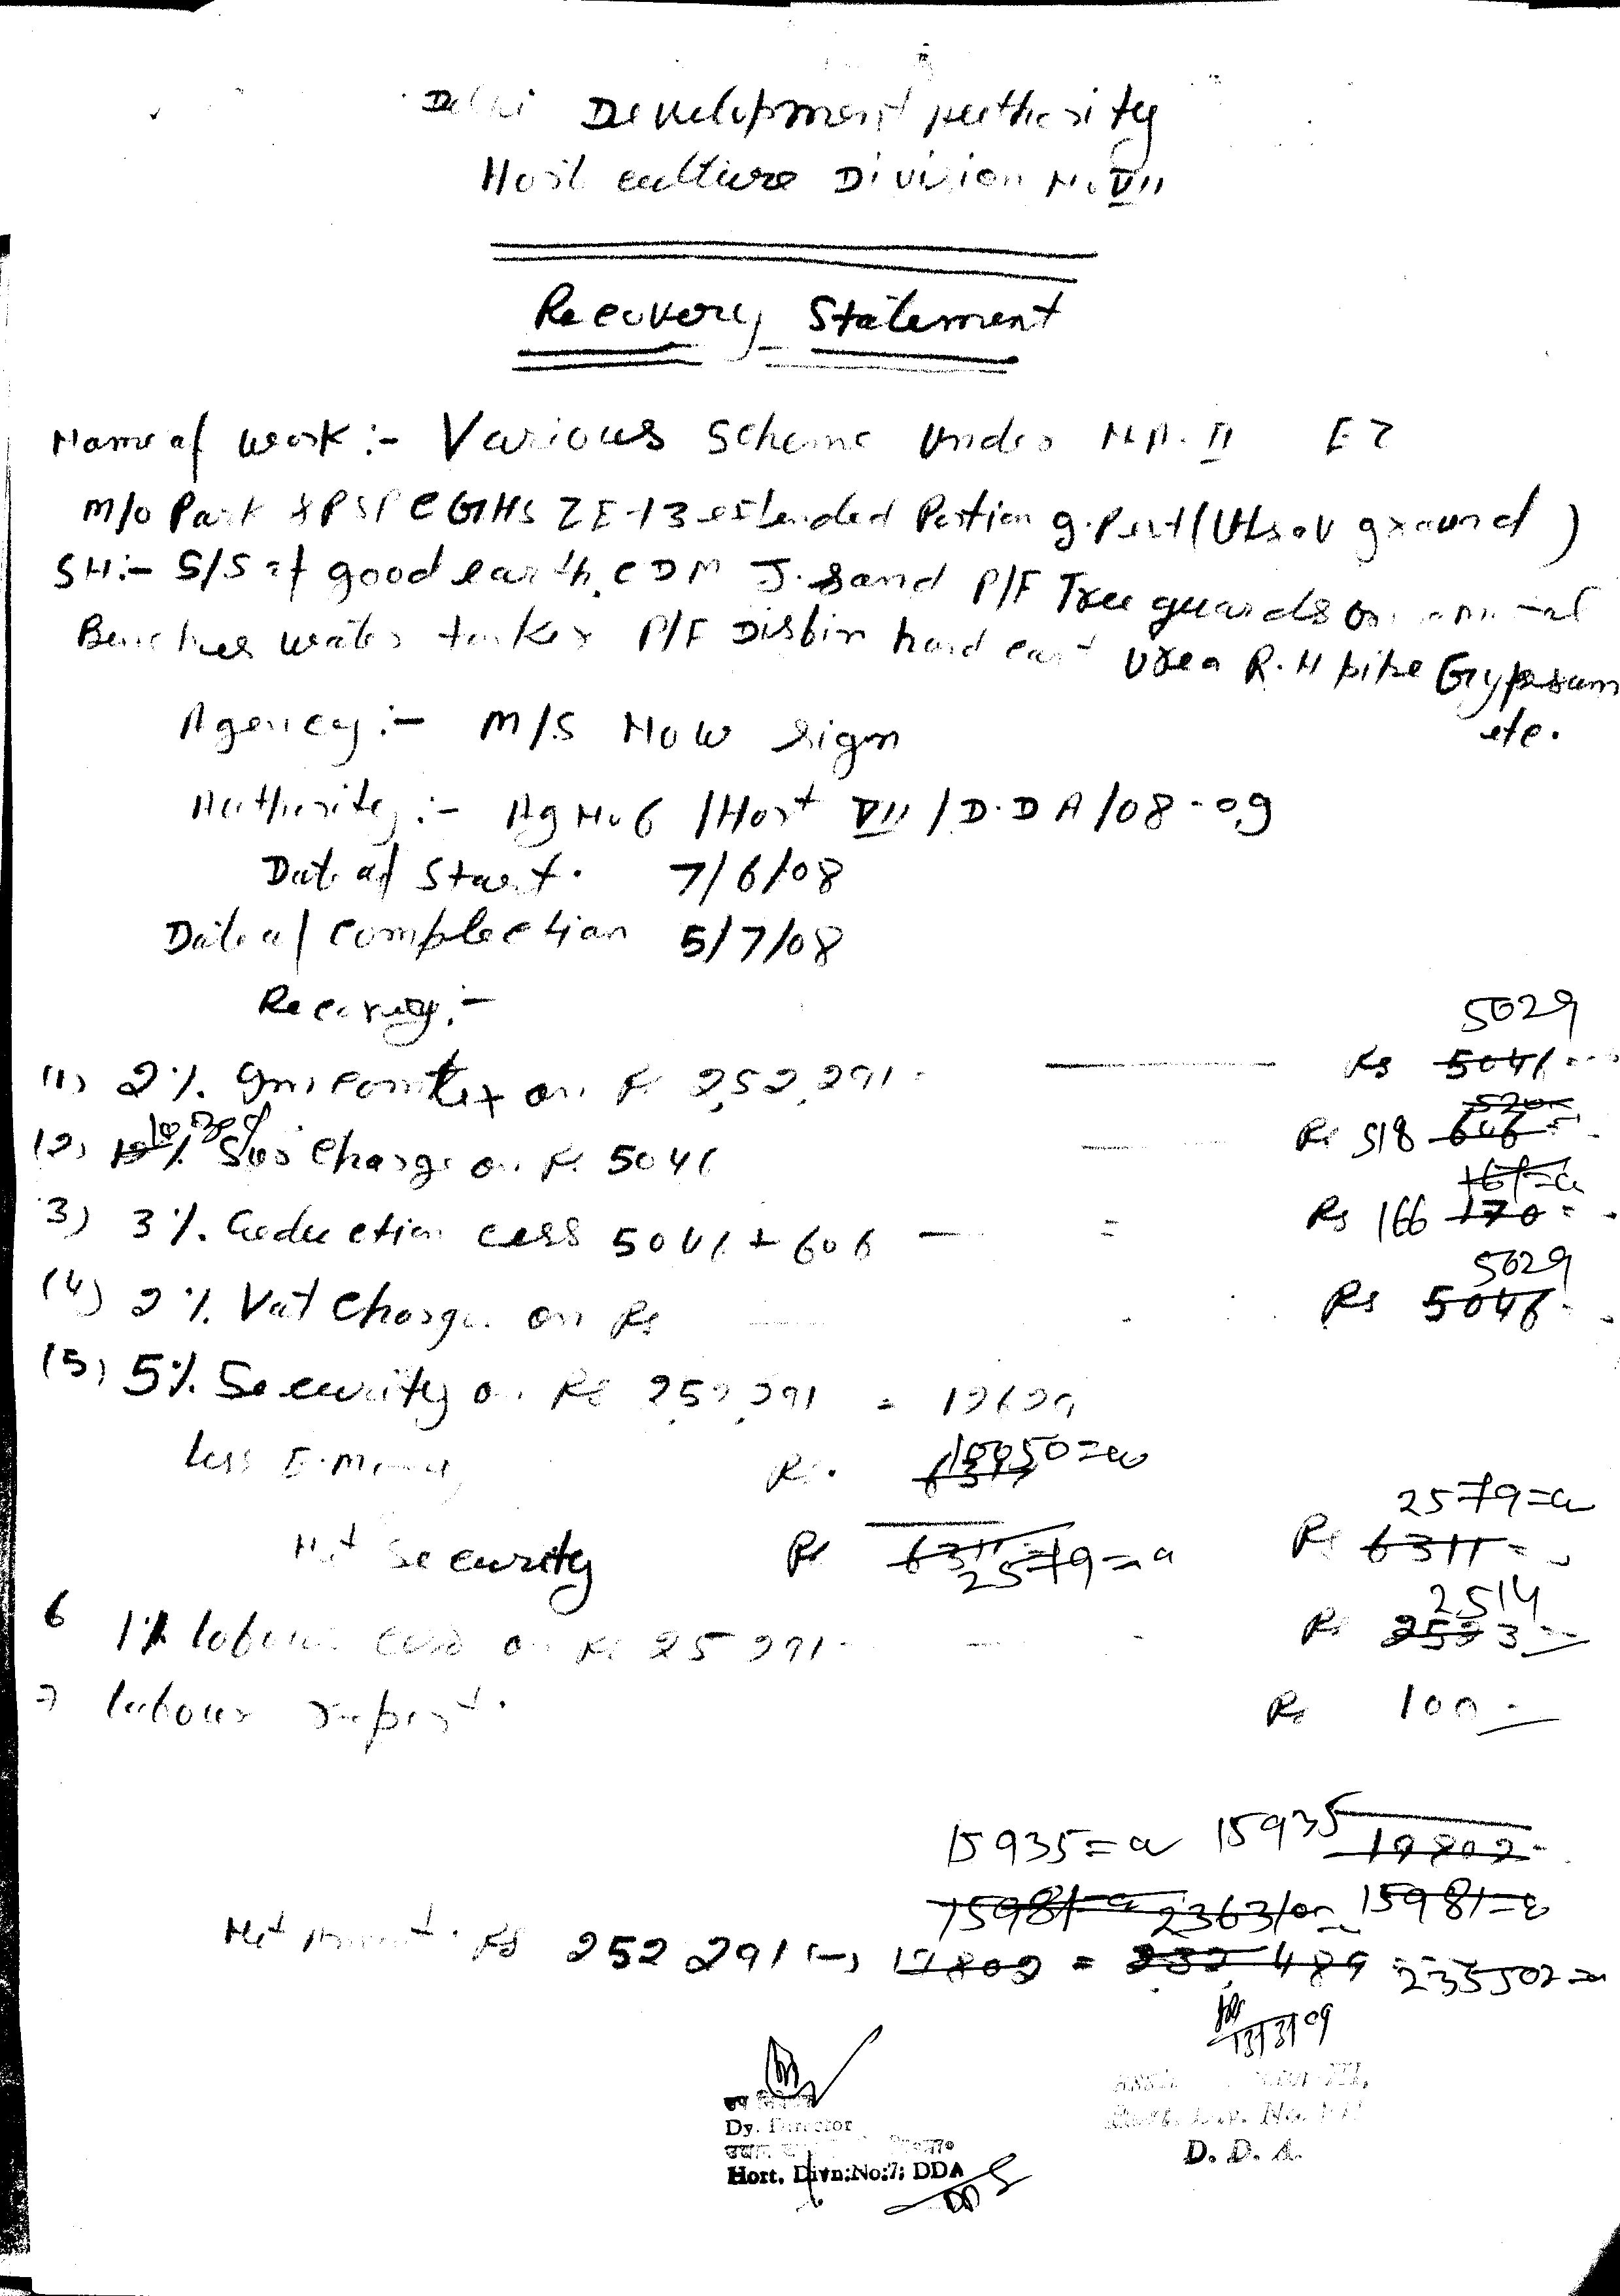 Delhi Development Authority
Horticulture Division No VII
Recovery Statement
Name of work :- Various Scheme Under N.A. II E Z
M/o Park & PSP CGHS ZE-13 extended Portion g. Part (Utsav ground)
SH:- S/S of good earth, C D M J. Sand P/F Tree guards
Benches water tanker P/F Disbin hard cart Urea R.H pipe Gypsum
etc.
Agency :- M/S Now Sign
Authority :- Ag No 6 / Hort VII / D.D A / 08-09
Date of Start. 7/6/08
Date of Complection 5/7/08
Recovery :-
5029
(1) 2%. Incomtex on Rs 2,52,291 Rs 5046
520
(2) Sur Charge on Rs 5046 Rs 518 606
167
3) 3%. Eeduction cess 5046 + 606 = Rs 166 170
5029
(4) 2%. Vat Charge on Rs Rs 5046
(5) 5%. Security on Rs 252,291 = 12629
Less E.Money Rs. 10050
2579
Net Security Rs 6311 2579 Rs 6311
2514
6 1% labour cess on Rs 25 291 Rs 2523
7 labour report. Rs 100
15935 15935 19802
15981 236310 15981
Net Amount. Rs 252 291 (-) 19802 = 232 489 235502
13/3/09
Dy. Director
Hort. Divn:No:7: DDA
D. D. A.